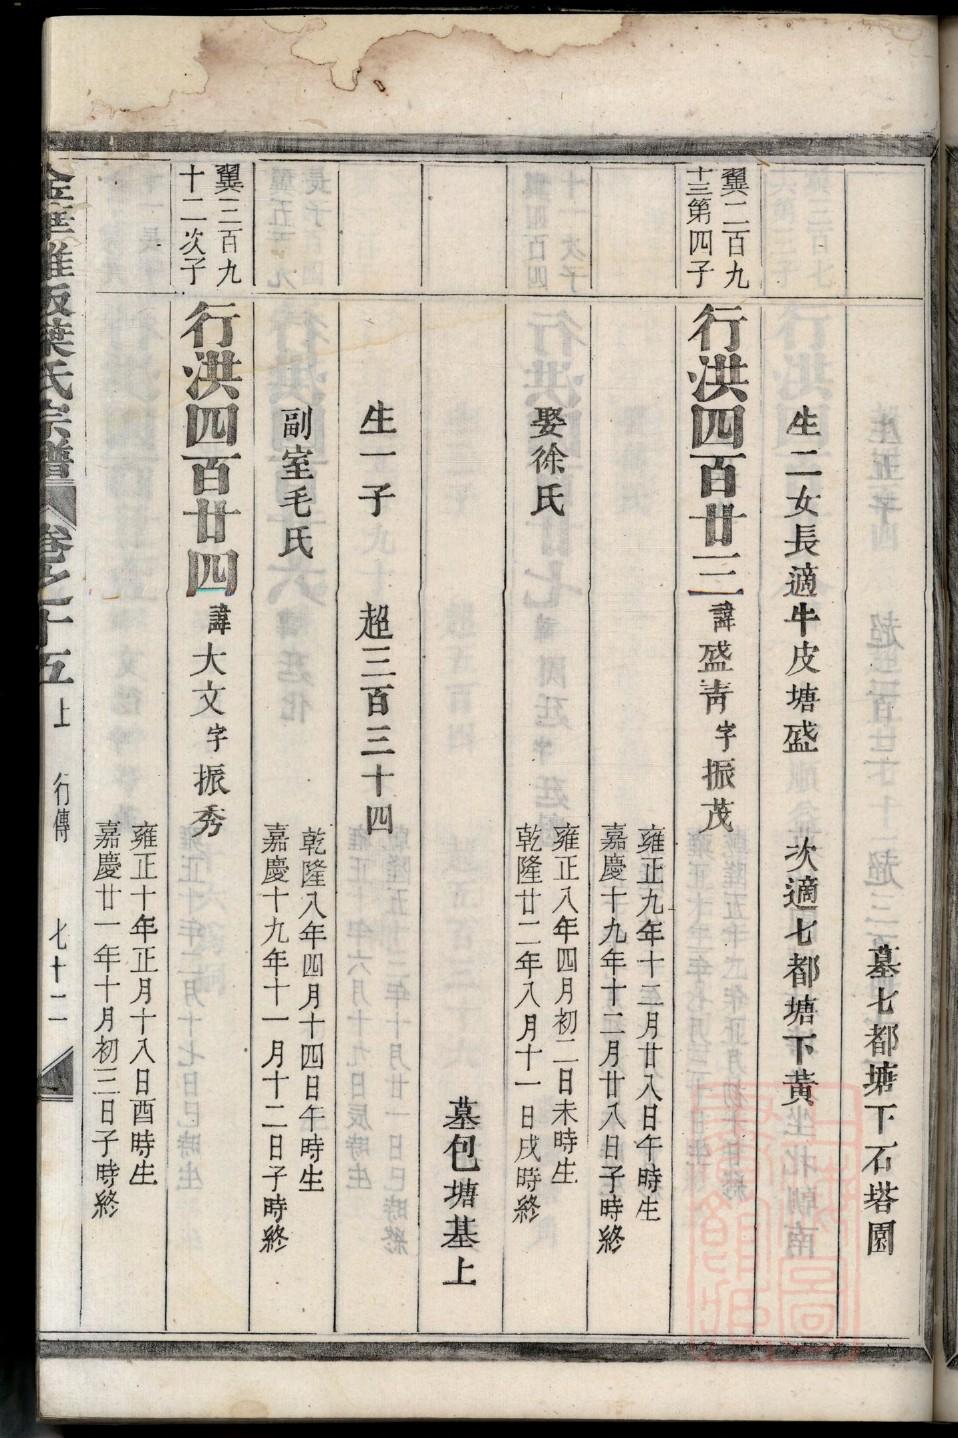 墓七都塘下石塔園
生二女長適牛皮塘盛 次適七都塘下黃
翼二百九十三第四子
行洪四百廿三 諱盛青 字振茂
雍正九年十二月廿八日午時生
嘉慶十九年十二月廿八日子時終
娶徐氏
雍正八年四月初二日未時生
乾隆廿二年八月十一日戌時終
墓包塘基上
生一子 超三百三十四
副室毛氏
乾隆八年四月十四日午時生
嘉慶十九年十一月十二日子時終
翼三百九十二次子
行洪四百廿四 諱大文 字振秀
雍正十年正月十八日酉時生
嘉慶廿一年十月初三日子時終
葉氏宗譜 卷之十五 上 行傳 七十二